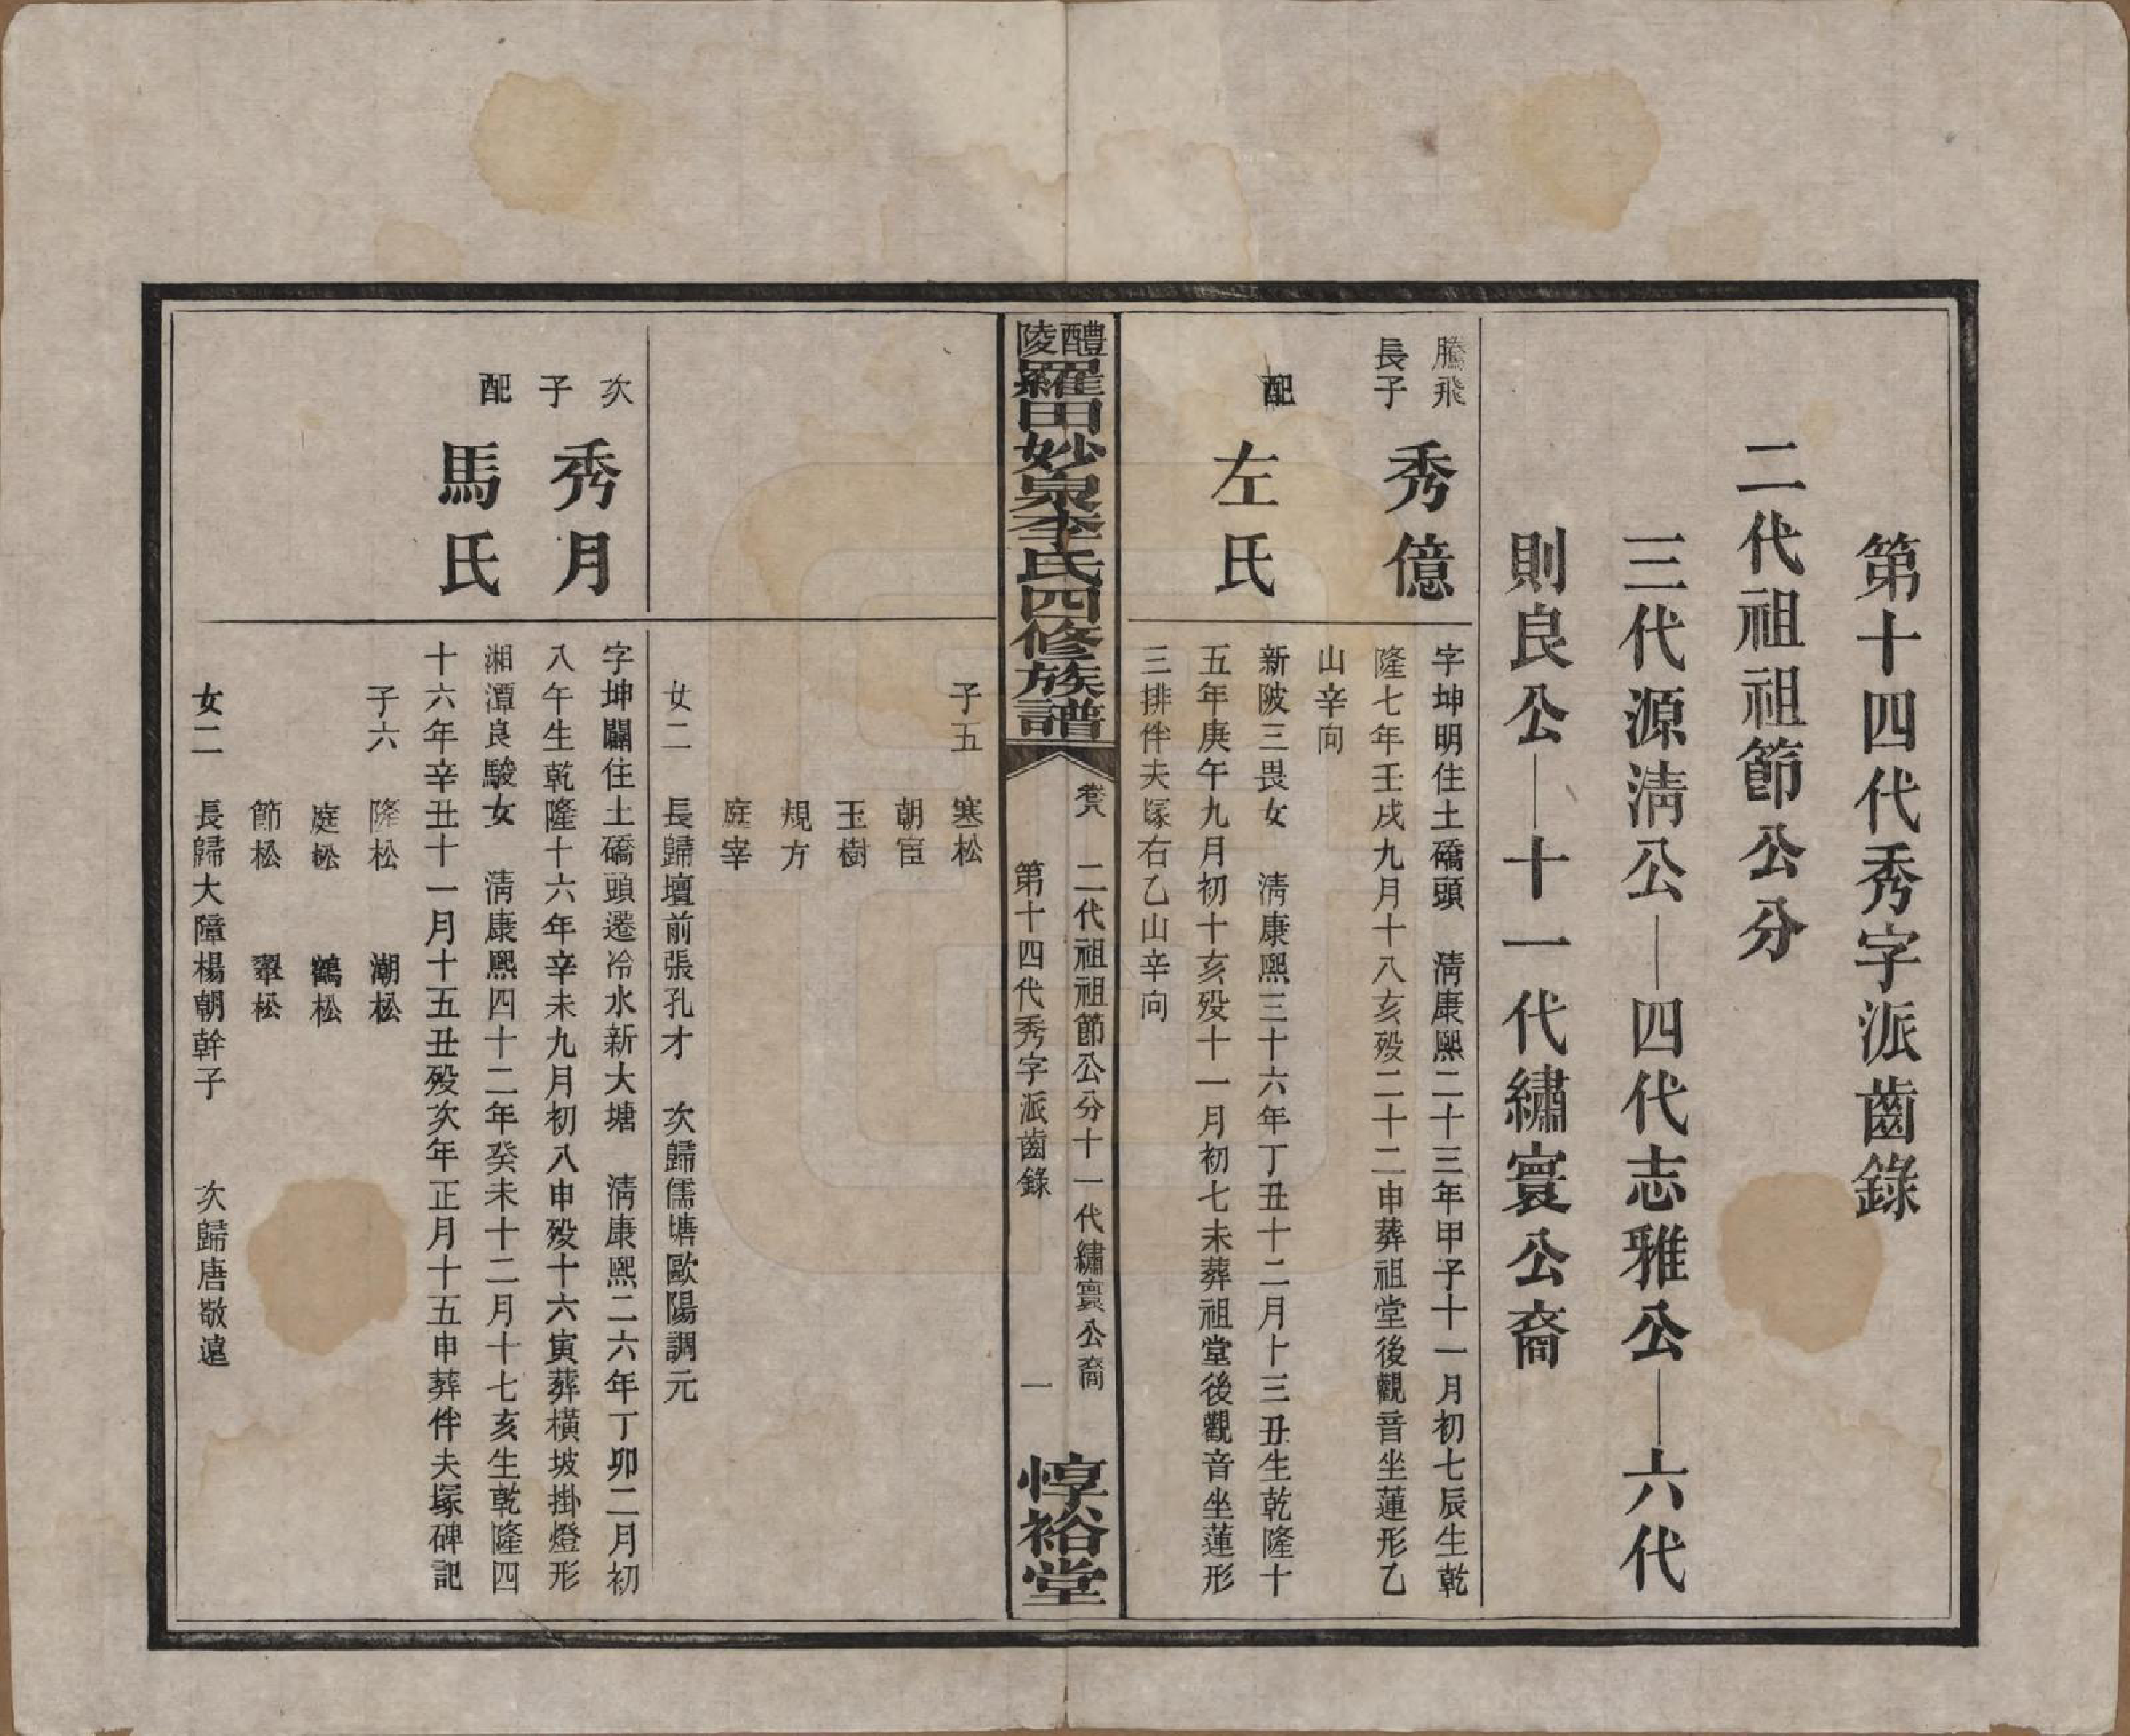 第十四代秀字派齒錄
二代祖祖節公分
三代源淸公—四代志雅公—六代
則良公—十一代繡寰公裔
騰飛
長子
秀億
字坤明住土礄頭　淸康熙二十三年甲子十一月初七辰生乾
隆七年壬戌九月十八亥殁二十二申葬祖堂後觀音坐蓮形乙
山辛向
配
左氏
新陂三畏女　淸康熙三十六年丁丑十二月十三丑生乾隆十
五年庚午九月初十亥殁十一月初七未葬祖堂後觀音坐蓮形
三排伴夫塚右乙山辛向
醴陵羅田妙泉李氏四修族譜
卷八　二代祖祖節公分十一代繡寰公裔
第十四代秀字派齒錄　一
惇裕堂
子五　寒松
朝宦
玉樹
規方
庭宰
女二　長歸壇前張孔才　次歸儒塘歐陽調元
次
子
秀月
字坤闢住土礄頭遷冷水新大塘　淸康熙二六年丁卯二月初
八午生乾隆十六年辛未九月初八申殁十六寅葬橫坡掛燈形
配
馬氏
湘潭良駿女　淸康熙四十二年癸未十二月十七亥生乾隆四
十六年辛丑十一月十五丑殁次年正月十五申葬伴夫塚碑記
子六　隆松　潮松
庭松　鶴松
節松　翠松
女二　長歸大障楊朝幹子　次歸唐敬遠